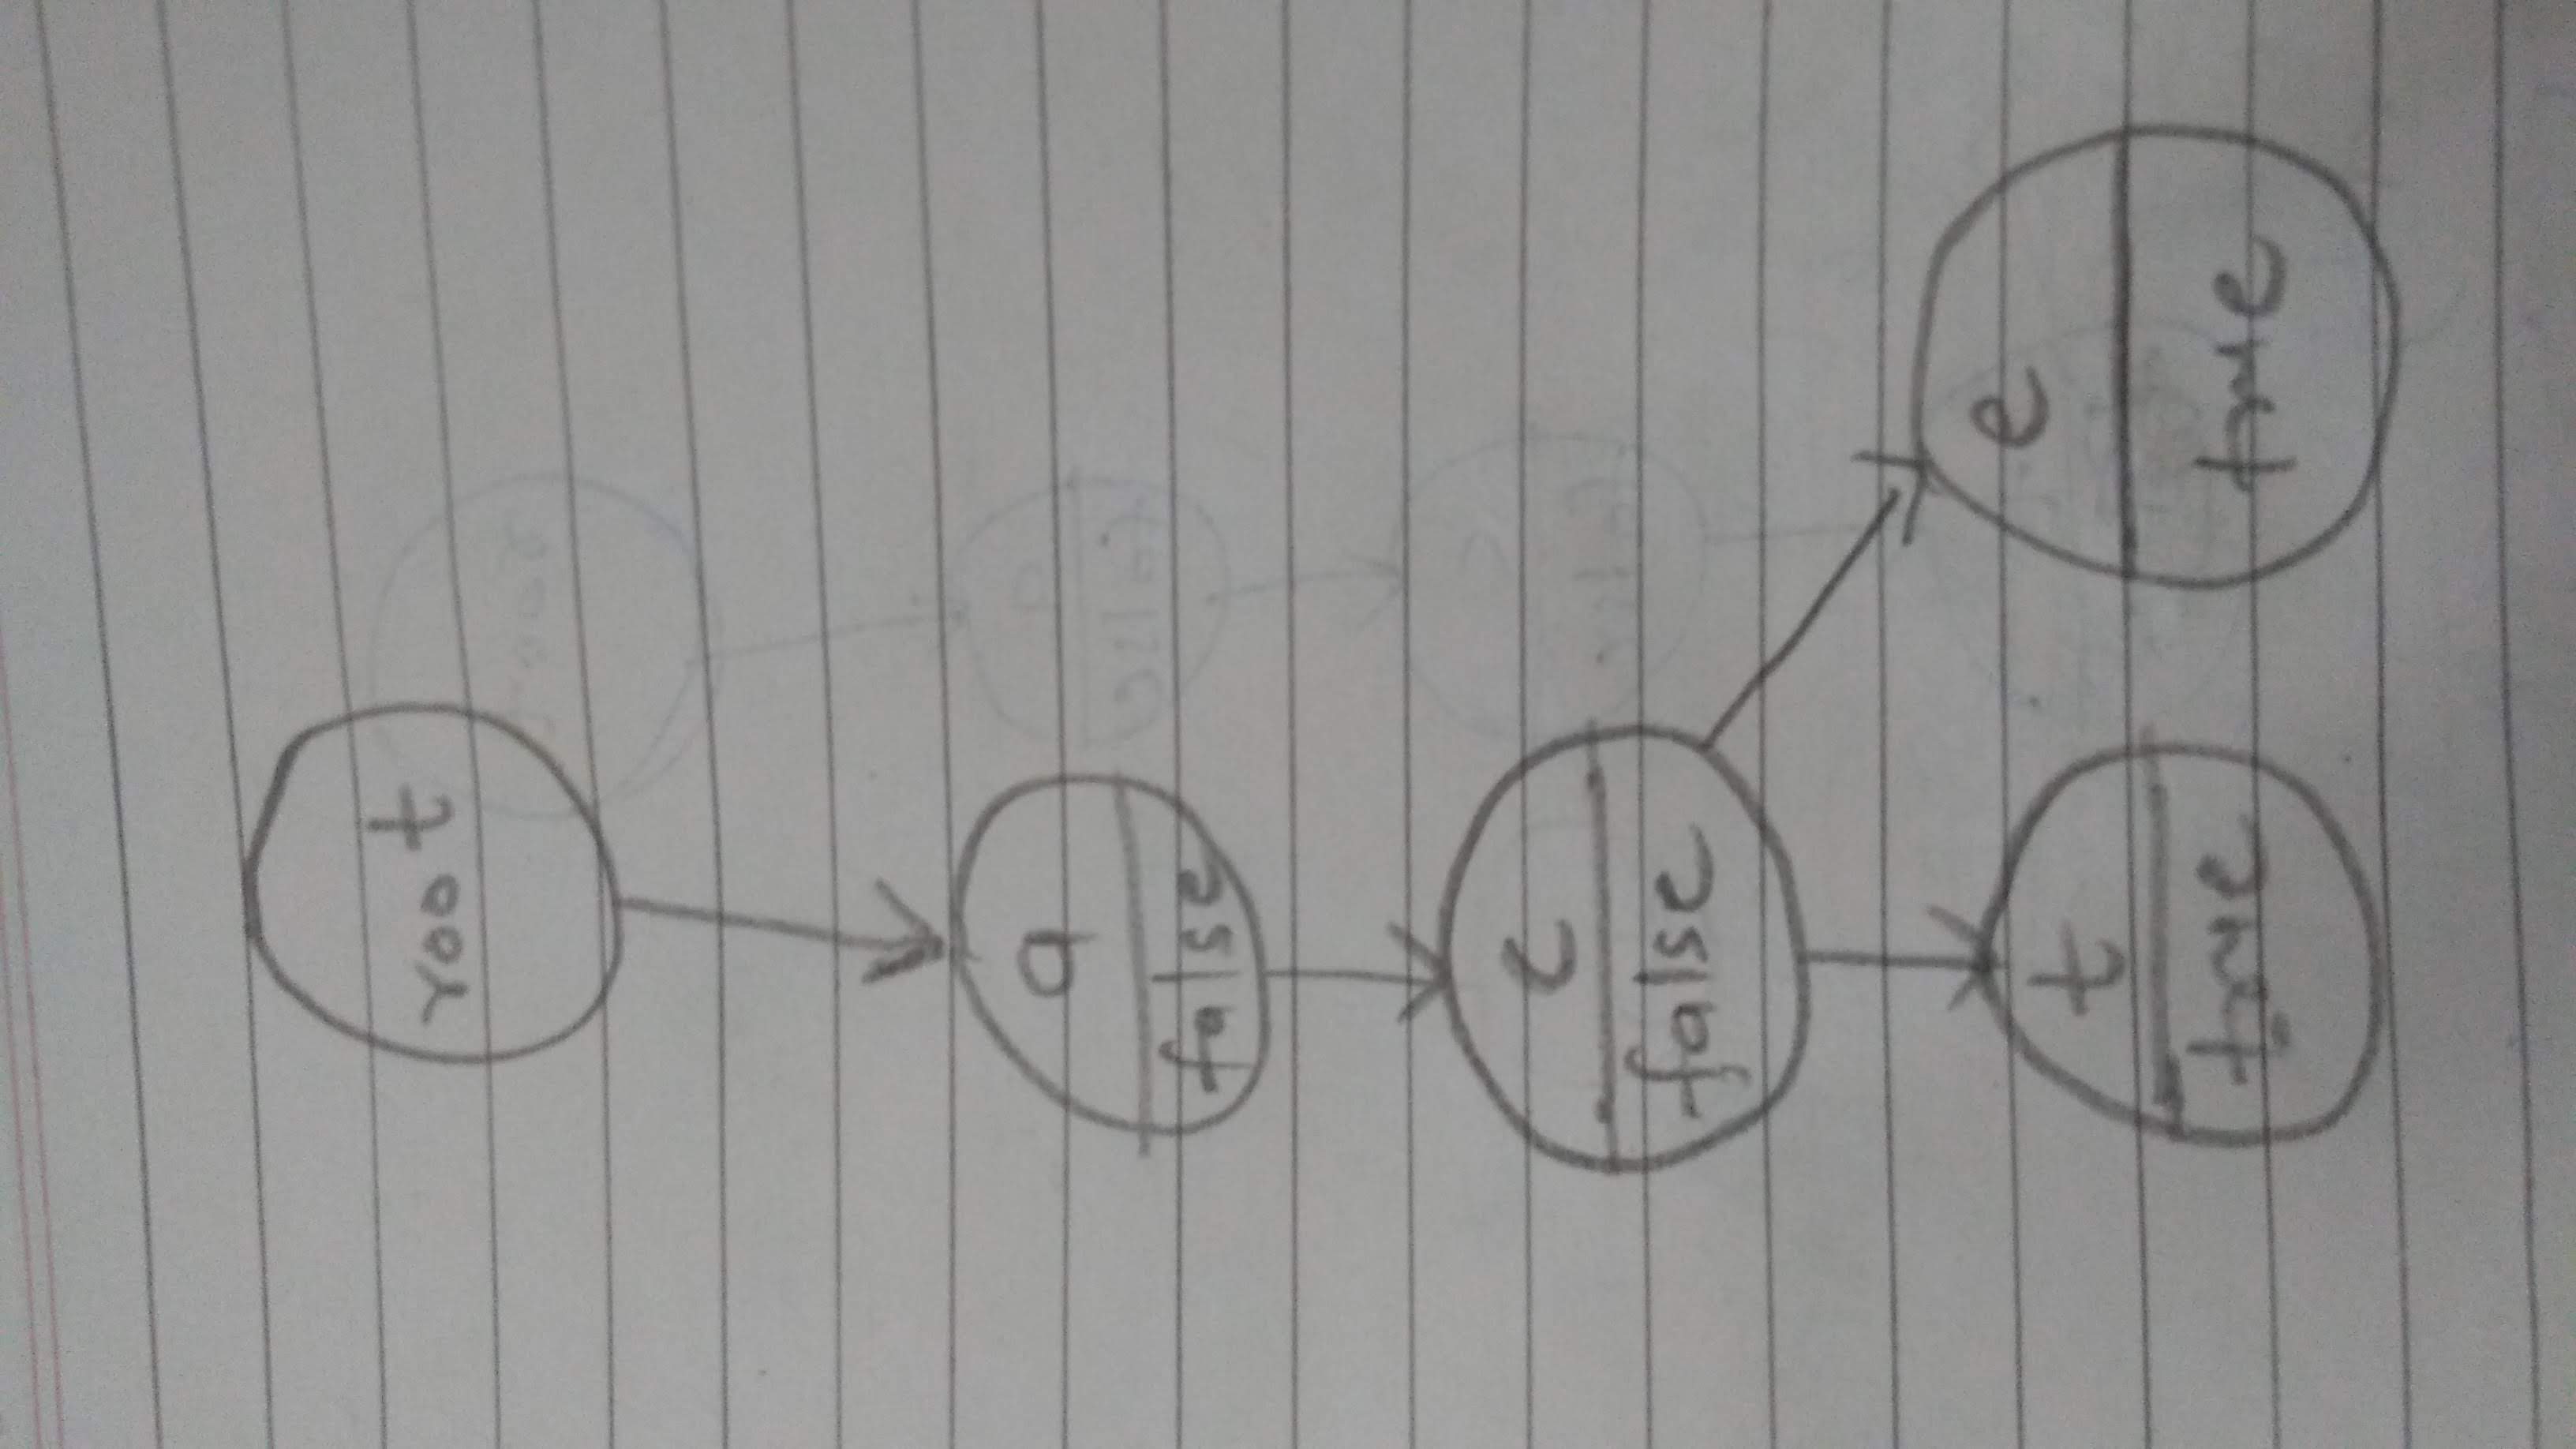 root
a
false
c
false
t
true
e
true